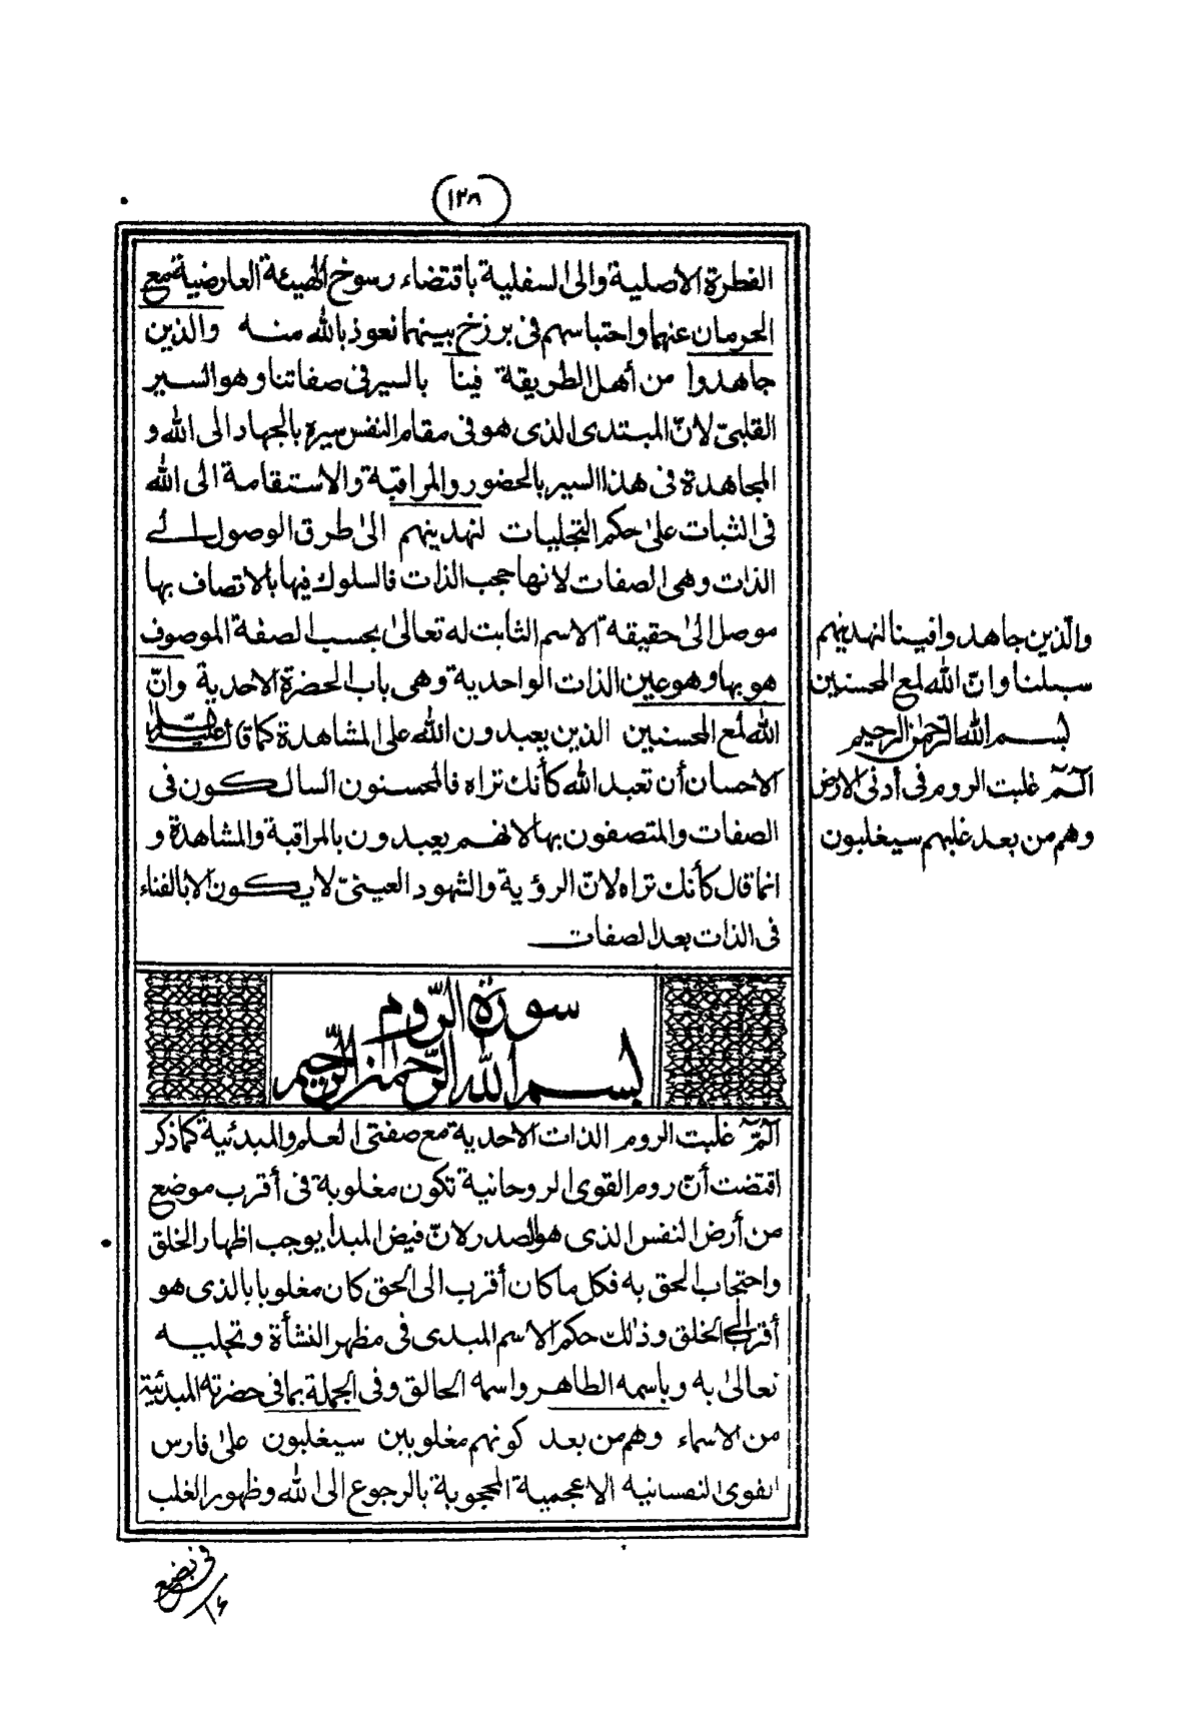 ١٢٨
الفطرة الاصلية والى السفلية باقتضاء رسوخ الهيئة العارضية مع
الحرمان عنهما واحتباسهم فى برزخ بينهما نعوذ بالله منه والذين
جاهدوا من أهل الطريقة فينا بالسير فى صفاتنا وهو السير
القلبىّ لانّ المبتدى الذى هو فى مقام النفس سيره بالجهاد الى الله و
المجاهدة فى هذا السير بالحضور والمراقبة والاستقامة الى الله
فى الثبات على حكم التجليات لنهدينهم الى طرق الوصول الى
الذات وهى الصفات لانها حجب الذات فالسلوك فيها بالاتصاف بها
موصل الى حقيقة الاسم الثابت له تعالى بحسب الصفة الموصوف
هو بها وهو عين الذات الواحدية وهى باب الحضرة الاحدية وانّ
الله لمع المحسنين الذين يعبدون الله على المشاهدة كما قال عليه السلام
الاحسان أن تعبد الله كأنك تراه فالمحسنون السالكون فى
الصفات والمتصفون بها لانهم يعبدون بالمراقبة والمشاهدة و
انما قال كأنك تراه لانّ الرؤية والشهود العينىّ لا يكون الا بالفناء
فى الذات بعد الصفات
سورة الرّوم
بسم الله الرّحمن الرّحيم
الٓمٓ غلبت الروم الذات الاحدية مع صفتى العلم والمبدئية كما ذكر
اقتضت أنّ روم القوى الروحانية تكون مغلوبة فى أقرب موضع
من أرض النفس الذى هو الصدر لانّ فيض المبدا يوجب اظهار الخلق
واحتجاب الحق به فكل ما كان أقرب الى الحق كان مغلوبا بالذى هو
أقرب الى الخلق وذلك حكم الاسم المبدى فى مظهر النشأة وتجليه
تعالى به وباسمه الظاهر واسمه الخالق وفى الجملة بما فى حضرته المبدئية
من الاسماء وهم من بعد كونهم مغلوبين سيغلبون على فارس
القوى النفسانية الاعجمية المحجوبة بالرجوع الى الله وظهور الغلب
والّذين جاهدوا فينا لنهدينهم
سبلنا وانّ الله لمع المحسنين
بسم الله الرّحمن الرحيم
الٓمٓ غلبت الروم فى أدنى الارض
وهم من بعد غلبهم سيغلبون
فى بضع